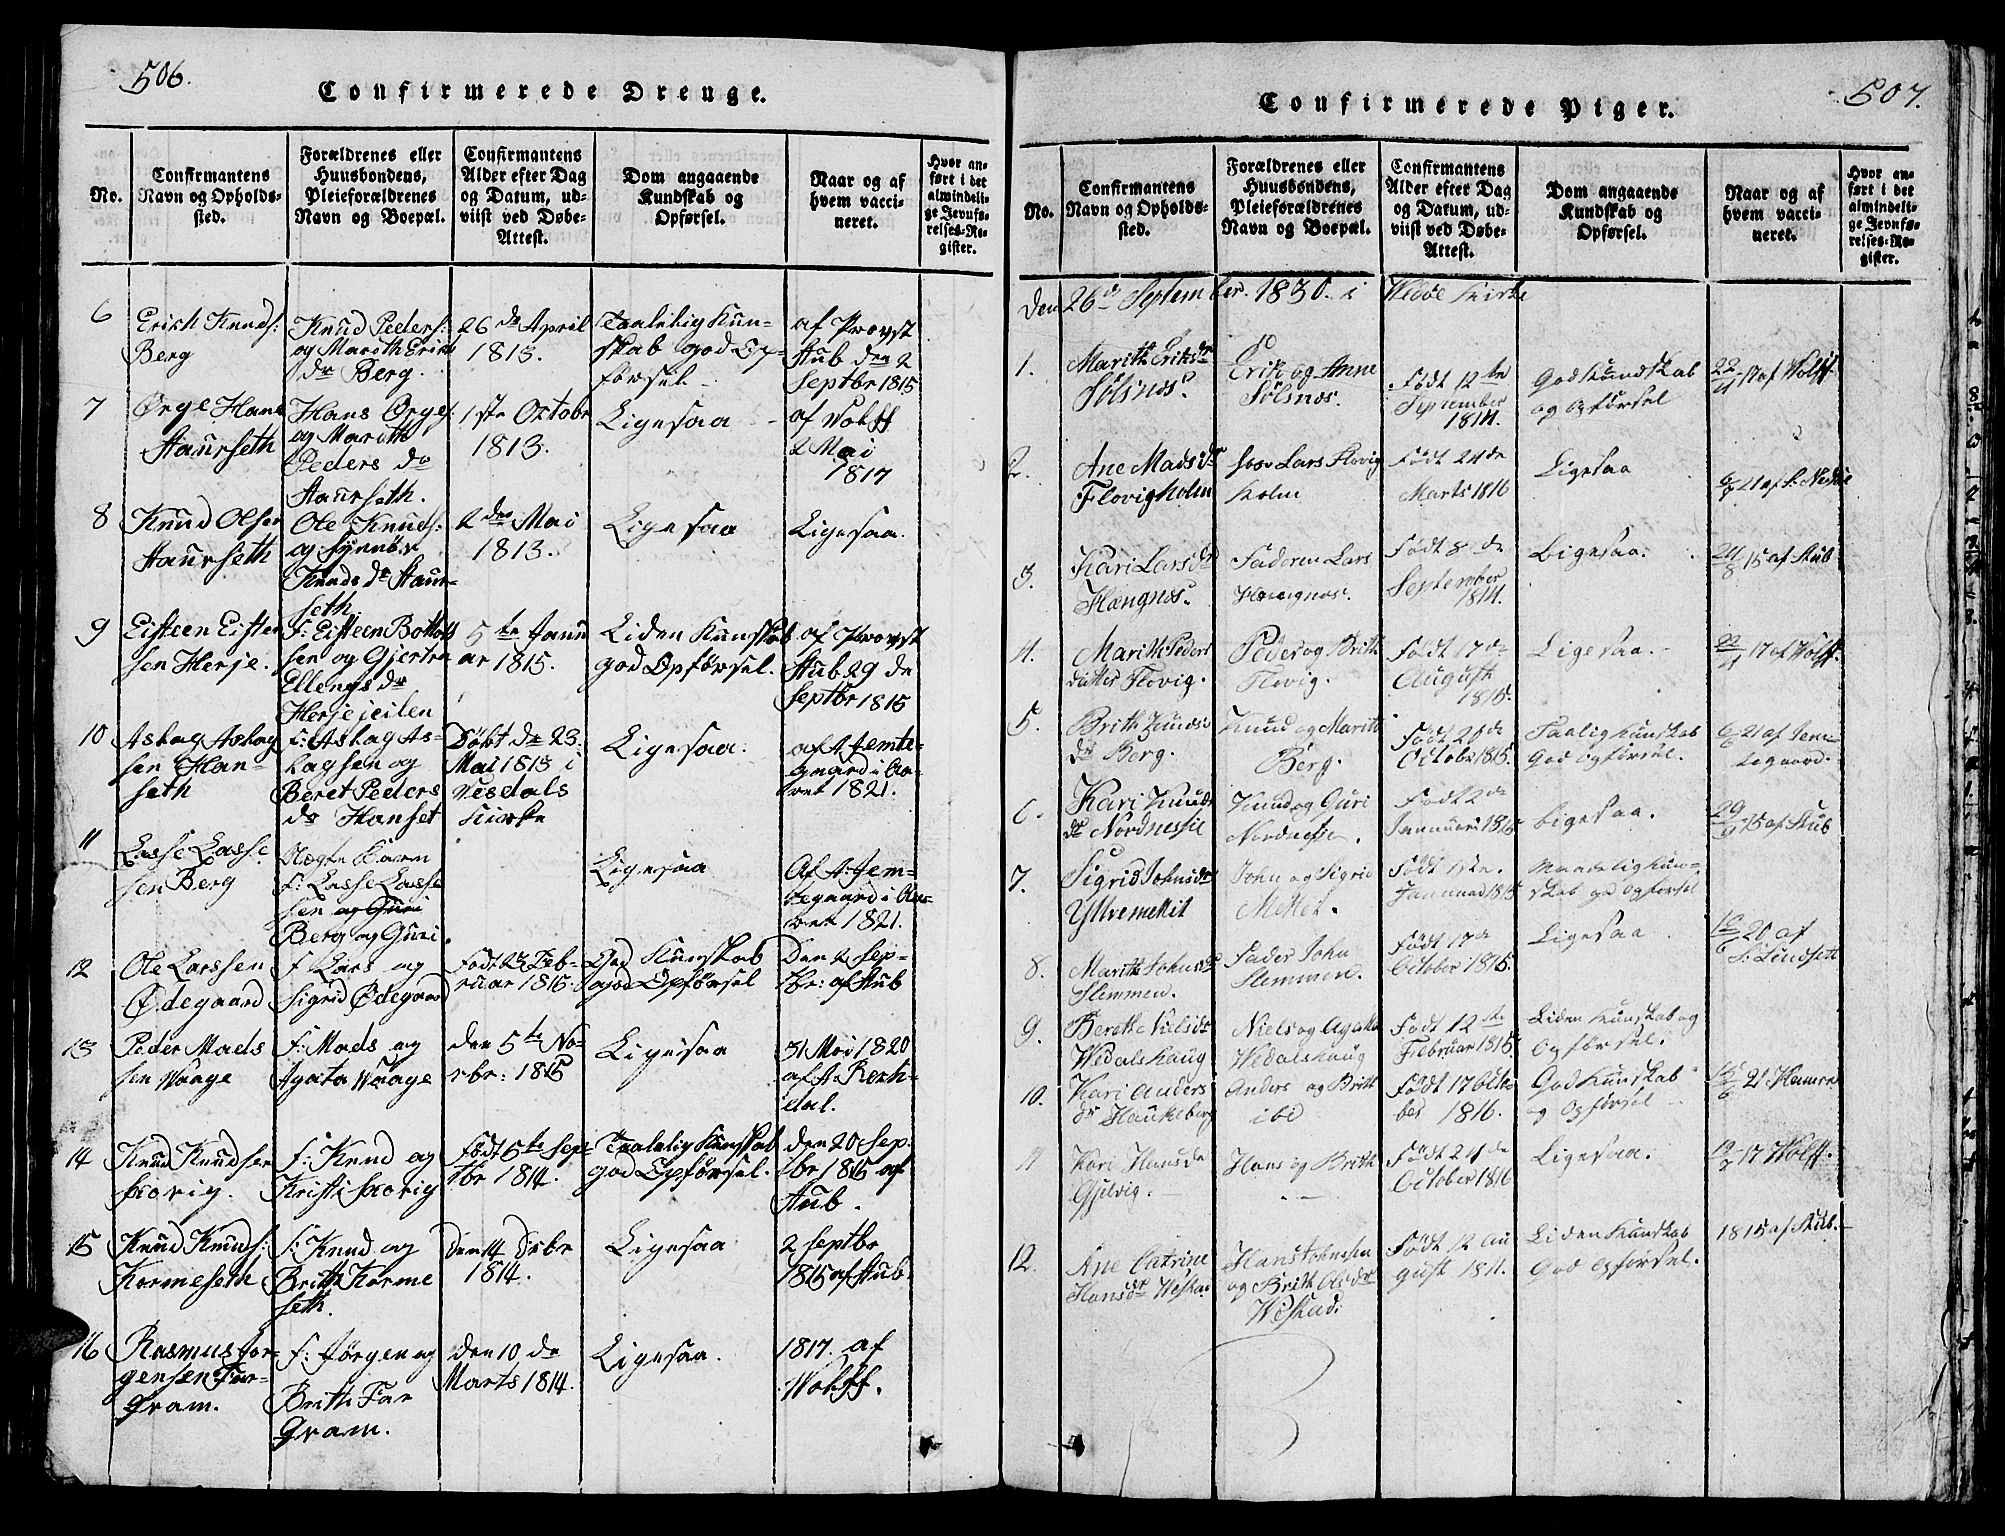 506.
Confirmerede Drenge.
No.
Confirmantens
Navn og Opholds-
sted.
Forældrenes eller
Huusbondens,
Pleieforældrenes
Navn og Boepæl.
Confirmantens
Alder efter Dag
og Datum, ud-
viist ved Døbe-
Attest.
Dom angaaende
Kundskab og
Opførsel.
Naar og af
hvem vacci-
neret.
Hvor an-
ført i det
almindeli-
ge Jevnfø-
relses-Re-
gister.
6
Erich Knuds:
Berg
Knud Peders:
og Marith Eriks
dr Berg.
26 de April
1813.
Taalelig Kun-
skab god Op-
førsel
af Provst
Stub den 2
Septbr 1815
7
Ørge Hans
Haurseth
Hans Ørges:
og Marith
Peders dr
Haurseth.
1ste Octobr
1813.
Ligesaa
af Wolff
2 Mai
1817
8
Knud Olsen
Haurseth
Ole Knuds:
og Synnøv
Knuds dr Haur-
seth
2 den Mai
1813.
Ligesaa
Ligesaa.
9
Eisteen Eisten
sen Herje.
F: Eisteen Bottolf
sen og Gjertru
Ellengs dr
Herjejeilen
5 te Janu
ar 1815.
Liden Kunskab
god Opførsel.
af Provst
Stub 29 de
Septbr 1815
10
Aslag Aslag
sen Han-
seth
F: Aslag As-
lagsen og
Beret Peders
dr Hanset
Døbt de 23
Mai 1813 i
Vesdals
Kirke
Ligesaa:
af A. Jemte-
gaard i Aa-
ret 1821.
11
Lasse Lasse
sen Berg
Ægte Barn
F: Lasse Lasse
sen og Guri
Berg og Guri.
Ligesaa
Af A: Jem-
tegaard i Aa-
ret 1821.
12
Ole Larssen
Ødegaard
F Lars og
Sigrid Ødegaard
Født 23 Feb-
ruar 1816.
God Kunskab
og god Opførsel
Den 2 Sep-
tbr: af Stub
13
Peder Mads
sen Waage
F: Mads og
Agata Waage
den 5te No-
vbr: 1815
Ligesaa
31 Mai 1820
af A. Rerh-
dal.
14
Knud Knudsen
F: Knud og
Kristi
Født 5te Sep-
tbr 1814.
Taalelig Kunskab
god Opførsel.
den 20 Sep.
tbr 1815 af
Stub.
15
Knud Knuds:
Kormeseth
F: Knud og
Britte Korme
seth.
Den 14 Decbr
1814.
Ligesaa
2 Septbr
1815 af Stub.
16
Rasmus Jør-
gensen Far-
gram.
F: Jørgen og
Britte Far
gram.
Den 10 de
Marts 1814.
Ligesaa.
1817. af
Wolff.
507.
Confirmerede Piger.
No.
Confirmantens
Navn og Opholds-
sted.
Forældrenes eller
Huusbondens,
Pleieforældrenes
Navn og Boepæl.
Confirmantens
Alder efter Dag
og Datum, ud-
viist ved Døbe-
Attest.
Dom angaaende
Kundskab og
Opførsel.
Naar og af
hvem vacci-
neret.
Hvor an-
ført i det
almindeli-
ge Jevnfø-
relses-Re-
gister.
Den 26 de September. 1830. i Wedøe Kirke
1.
Marith Eriksdr
Sølsnes.
Erik og Anne
Sølsnes.
Født 12 te
September
1814.
God Kundskab
og Opførsel
22/4 17 af Wolff.
2.
Ane Madsdr
Flovigholm
Lars Flovig
holm
Født 24 de
Marts 1816
Ligesaa
3.
Kari Larsdr
Hangnes.
Faderen Lars
Født 8 de
September
1814.
Ligesaa.
24/8 15 af Stub
4.
Marith Peders
datter Flovig.
Peder og Brith
Flovig.
Født 17 de
August
1815.
Ligesaa.
22/4 17 af Wolff.
5.
Brith Knuds
dr Berg.
Knud og Marith
Berg.
Født 20 de
October 1815.
Taalig kunskab
God Opførsel.
6/6 21 af Jem-
tegaard.
6.
Kari Knuds
dr Nordnesse
Knud og Guri
Nordnesse.
Født 2 de
Januari 1816
Ligesaa.
29/9 15 af Stub
7.
Sigrid Johnsdr
Yttremettit
John og Sigrid
Mettet.
Født 1ste
Januuar 1815
Maadelig kun-
skab god Opførsel
8.
Marith Johnsdr
Slemmen.
Fader John
Slemmen.
Født 17 de
October 1815.
Ligesaa
20 af
S: Lindsett
9.
Berethe Nielsdr
Wedalshaug
Niels og Agatha
Wedalshaug
Født 12 te
Februar 1815
Liden Kunskab og
Opførsel.
10.
Kari Anders
dr Haukeberg
Anders og Brith
ibd
Født 17 Octo-
ber 1816.
God Kunskab
og Opførsel
11
Kari Hansdr
Gjelvig.
Hans og Brith
Født 24 de
October 1816
Ligesaa.
17 Wolff.
12.
Ane Catrine
Hansdr
Hans Johnsen
og Brith Olesdr
Født 12 Au
gust 181.
Liden Kundskab
God Opførsel.
1815 af Stub.